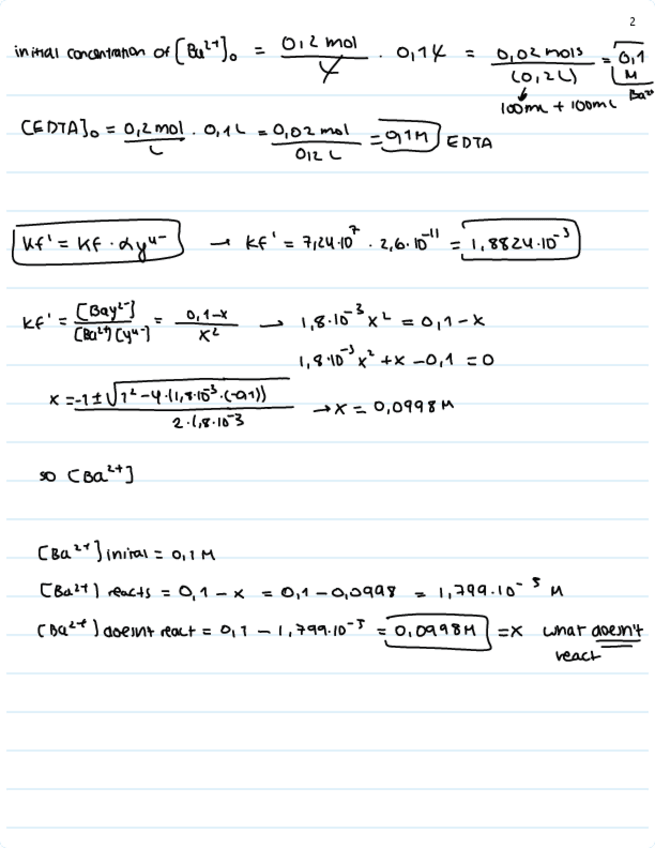 2
initial concentration of [Ba²⁺]₀ = 0,2 mol / L · 0,1 L = 0,02 mols / (0,2 L) = 0,1 M Ba²⁺
100mL + 100mL
[EDTA]₀ = 0,2 mol / L · 0,1 L = 0,02 mol / 0,2 L = 0,1M EDTA
Kf' = Kf · αy⁴⁻ → Kf' = 7,24·10⁷ · 2,6·10⁻¹¹ = 1,8824·10⁻³
Kf' = [BaY²⁻] / [Ba²⁺][Y⁴⁻] = 0,1-x / x² → 1,8·10⁻³ x² = 0,1 - x
1,8·10⁻³ x² + x - 0,1 = 0
x = -1 ± √(1² - 4·(1,8·10⁻³·(-0,1))) / 2·1,8·10⁻³ → x = 0,0998 M
so [Ba²⁺]
[Ba²⁺] initial = 0,1 M
[Ba²⁺] reacts = 0,1 - x = 0,1 - 0,0998 = 1,799·10⁻⁵ M
[Ba²⁺] doesn't react = 0,1 - 1,799·10⁻⁵ = 0,0998 M = x what doesn't
react